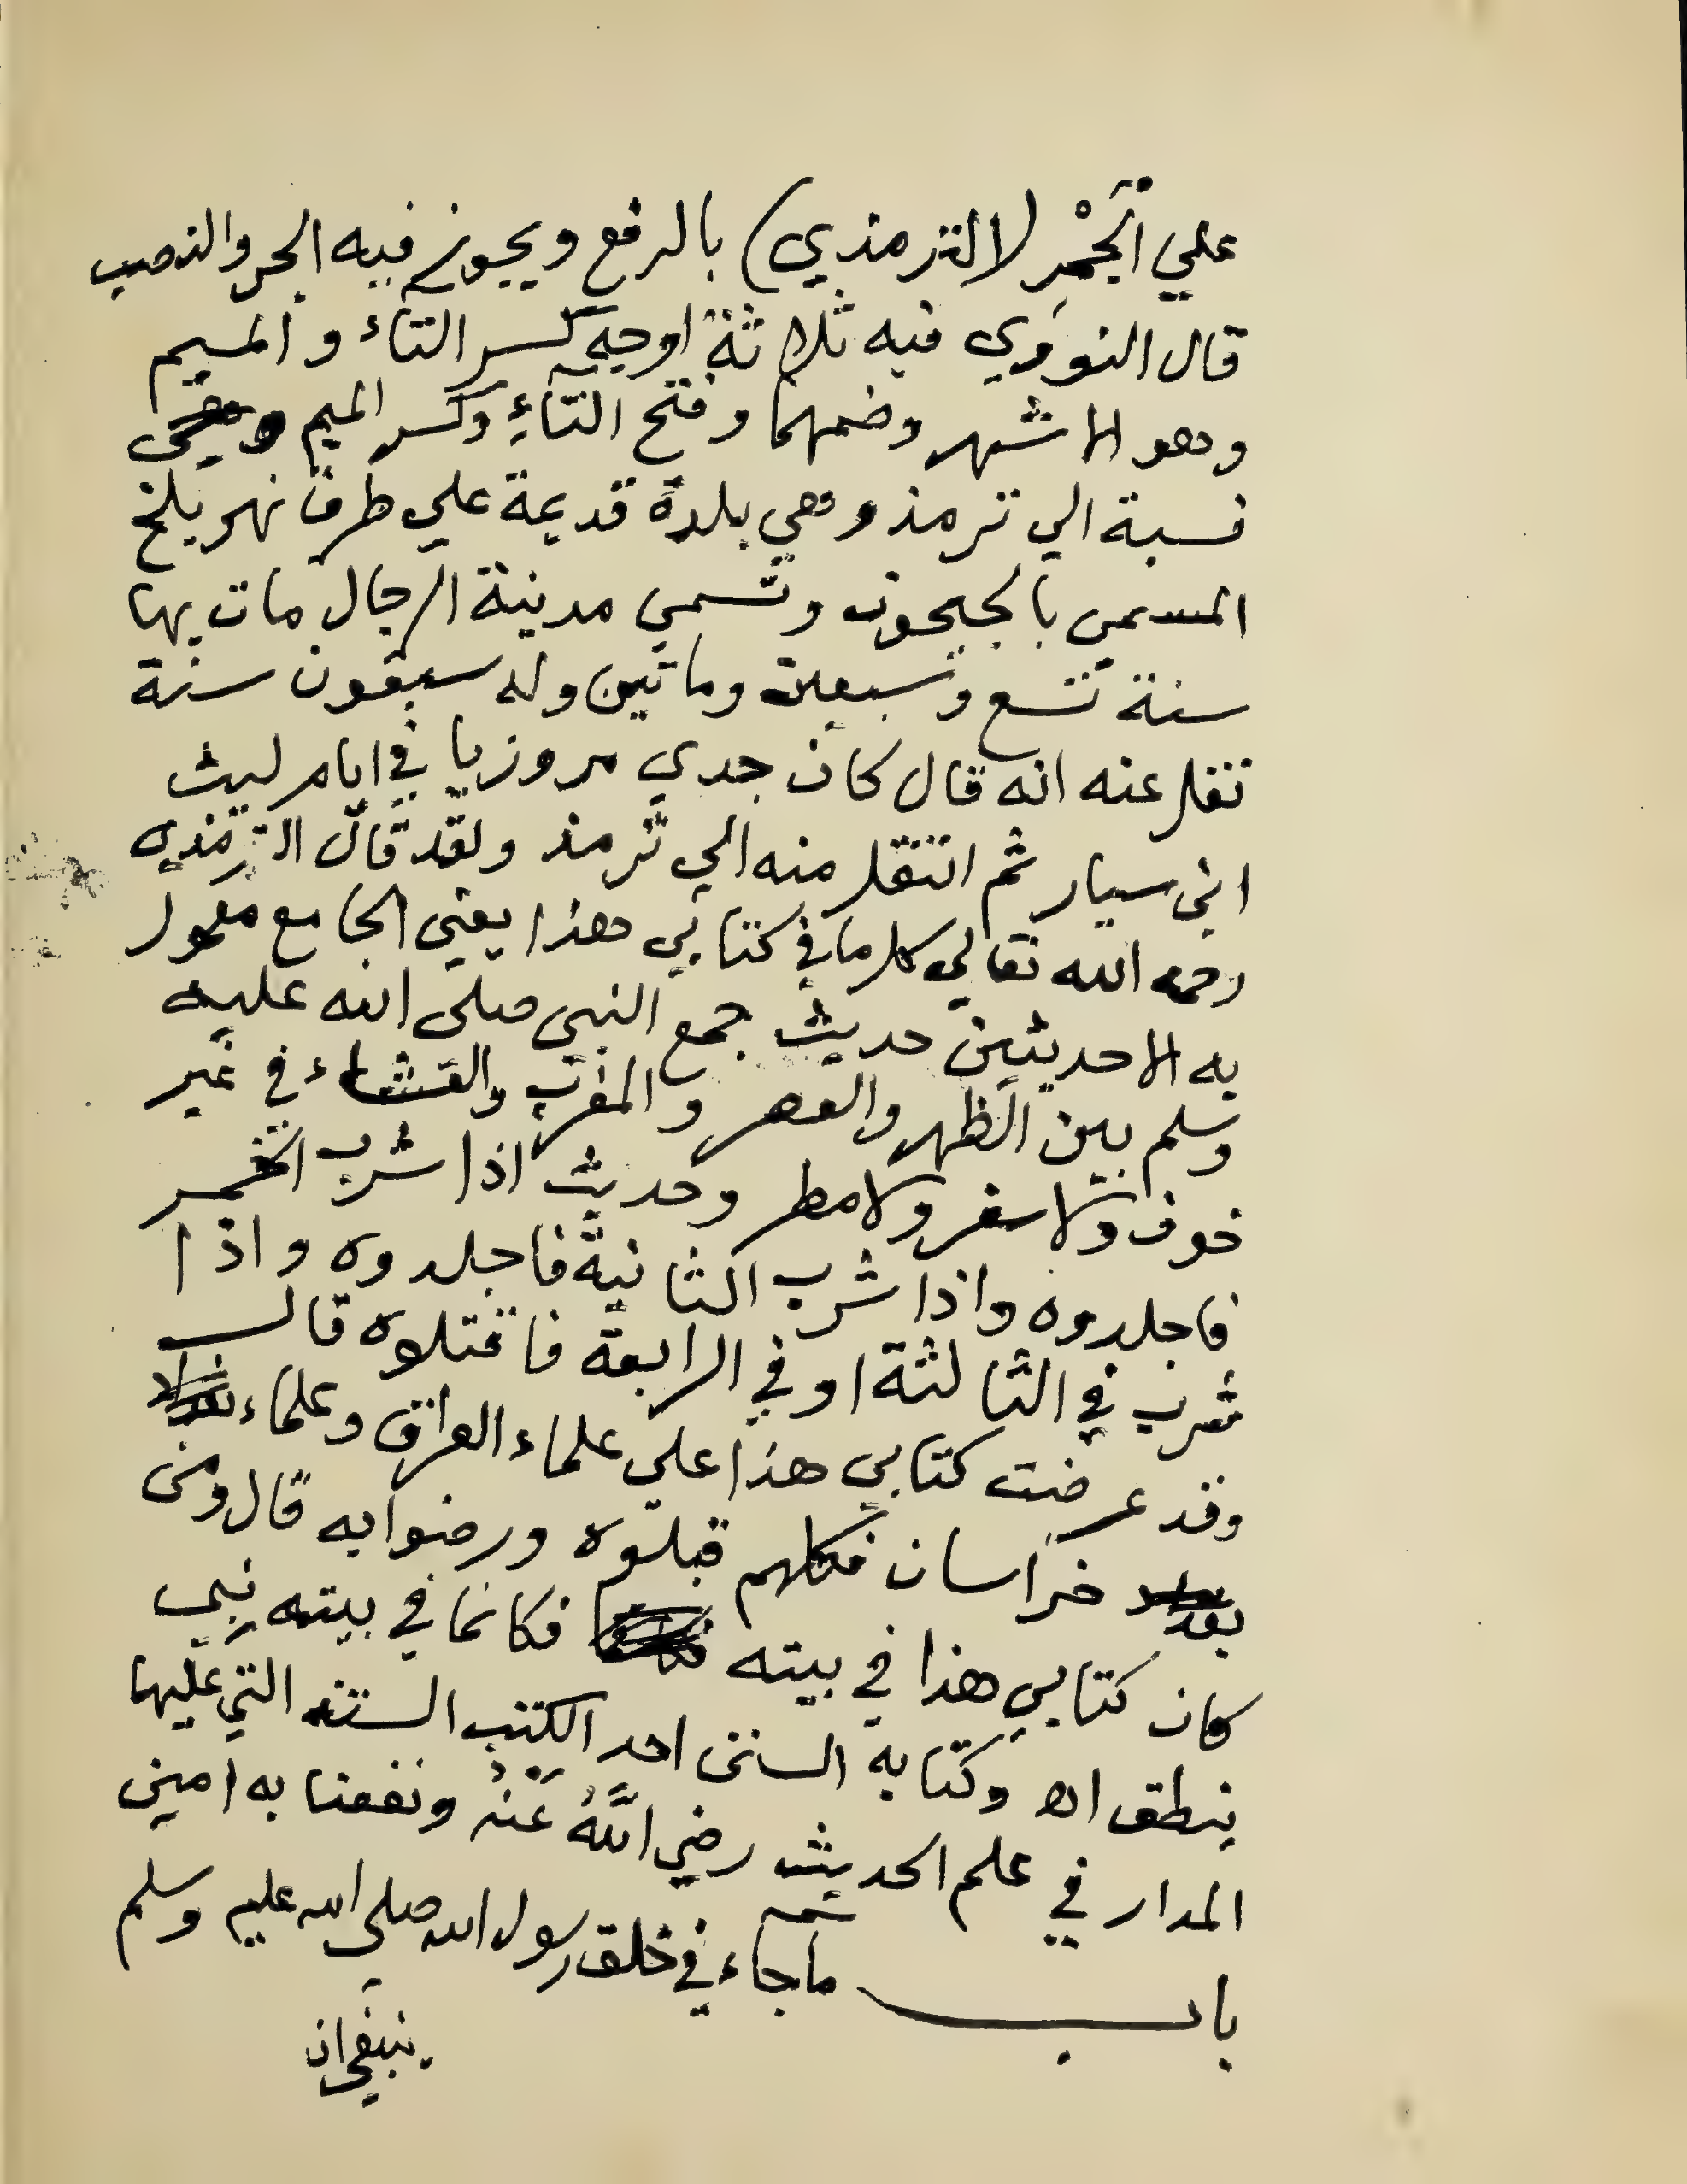 علي الجَمْر (الترمذي) بالرفع ويجوز فيه الجر والنصب
قال النووي فيه ثلاثة اوجه كسر التاء والميم
وهو الاشهر وضمهما وفتح التاءِ وكسر الميم
نسبة الي ترمذ وهي بلدة قديمة علي طرف نهر بلخ
المسمي بالجيحون وتسمي مدينة الرجال مات بها
سنة تسع وسبعين وماتين وله سبعون سنة
نقل عنه انه قال كان جدي مروزيا في ايام ليث
ابن سيار ثم انتقل منه الي ترمذ ولقد قال الترمذي
رحمه الله تعالي كل ما في كتابي هذا يعني الجامع معمول
به الا حديثين حديث جمع النبي صلى الله عليه
وسلم بين الظهر والعصر والمغرب والعشاء في غير
خوف ولا سفر ولا مطر وحديث اذا شرب الخمر
فاجلدوه واذا شرب الثانية فاجلدوه واذا
شرب في الثالثة او في الرابعة فاقتلوه قال
وقد عرضت كتابي هذا علي علماء العراق وعلماء
خراسان فكلهم قبلوه ورضوا به قال ومن
كان كتابي هذا في بيته فكانما في بيته نبي
ينطق الا وكتابه السنن احد الكتب الستة التي عليها
المدار في علم الحديث رضي اللَّهُ عَنْهُ ونفعنا به امين
باب ما جاء في خلق رسول الله صلي الله عليه وسلم
ينبغي ان